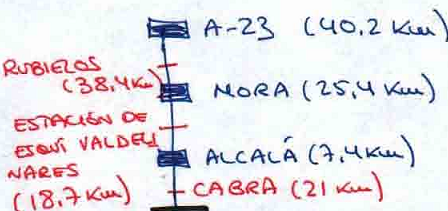 A-23 (40,2 Km)
RUBIELOS
(38,4 Km)
MORA (25,4 Km)
ESTACIÓN DE
ESQUÍ VALDELI
NARES
(18,7 Km)
ALCALÁ (7,4 Km)
CABRA (21 Km)